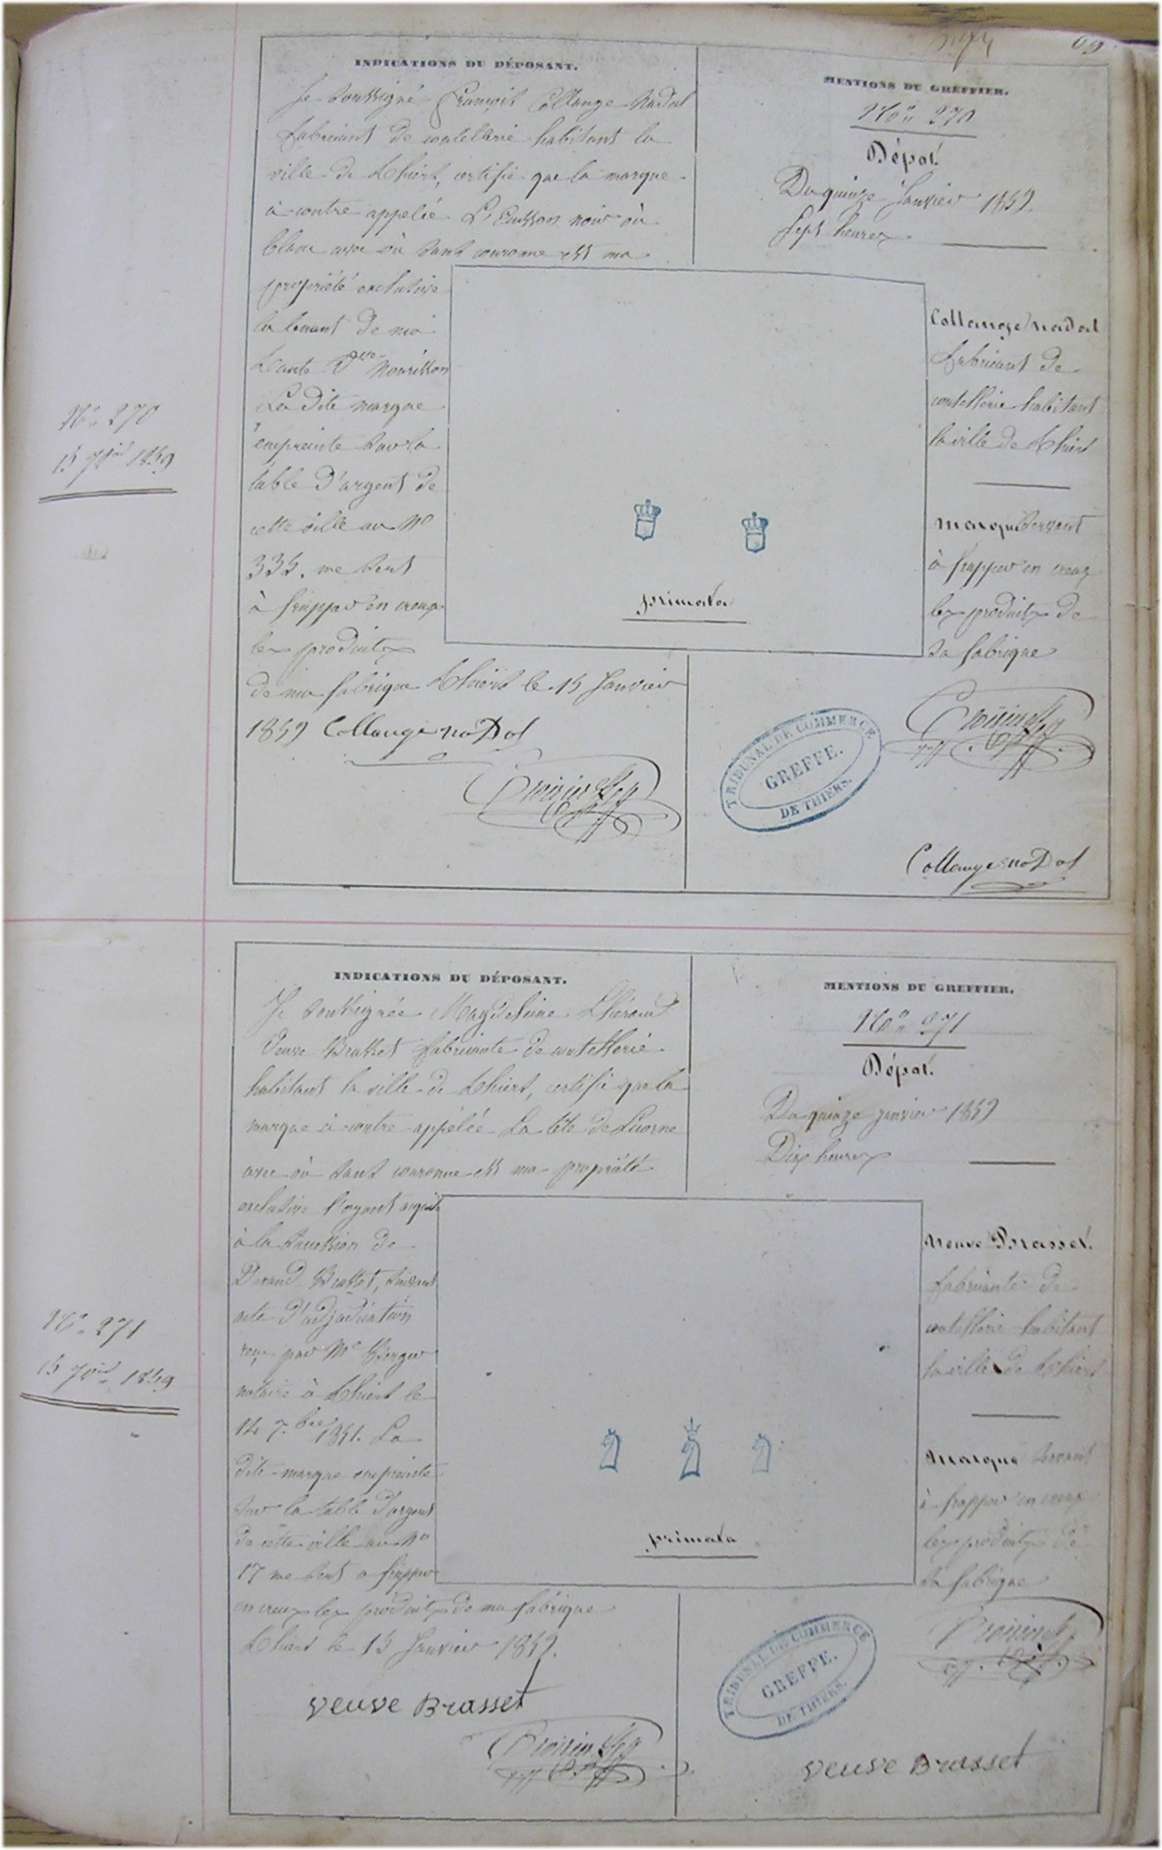 69
INDICATIONS DU DÉPOSANT.
Je soussigné François Collange Nadal
fabricant de coutellerie habitant la
ville de Thiers, certifie que la marque
ci contre appelée L'Ecusson noir où
blanc avec où sans couronne est ma
propriété exclusive
la tenant de ma
tante Vve Nourisson
La dite marque
empreinte sur la
table d'argent de
cette ville au No
335. me sert
à frapper en creux
les produits
de ma fabrique Thiers le 15 Janvier
1859 Collange naDal
MENTIONS DU GREFFIER.
No 270
Dépôt.
Du quinze Janvier 1859.
Sept heures
Collange Nadal
fabricant de
coutellerie habitant
la ville de Thiers
Marque servant
à frapper en creux
les produits de
sa fabrique
primata
TRIBUNAL DE COMMERCE
GREFFE.
DE THIERS.
Collange naDal
No 270
15 1859
INDICATIONS DU DÉPOSANT.
Je soussignée Magdeleine
Veuve Brasset fabricante de coutellerie
habitant la ville de Thiers, certifie que la
marque ci contre appelée La tête de Licorne
avec où sans couronne est ma propriété
exclusive l'ayant acquise
à la succession de
Durand Brasset, suivant
acte d'adjudication
reçu par Me
notaire à Thiers le
14 7.bre 1851. La
dite marque empreinte
sur la table d'argent
de cette ville au No
17 me sert a frapper
en creux les produits de ma fabrique
Thiers le 15 Janvier 1859.
Veuve Brasset
MENTIONS DU GREFFIER.
No 271
Dépôt.
Du quinze janvier 1859
Dix heures
Veuve Brasset.
fabricante de
coutellerie habitant
la ville de Thiers
Marque servant
à frapper en creux
les produits de
sa fabrique
primata
TRIBUNAL DE COMMERCE
GREFFE.
DE THIERS.
Veuve Brasset
No 271
15 1859